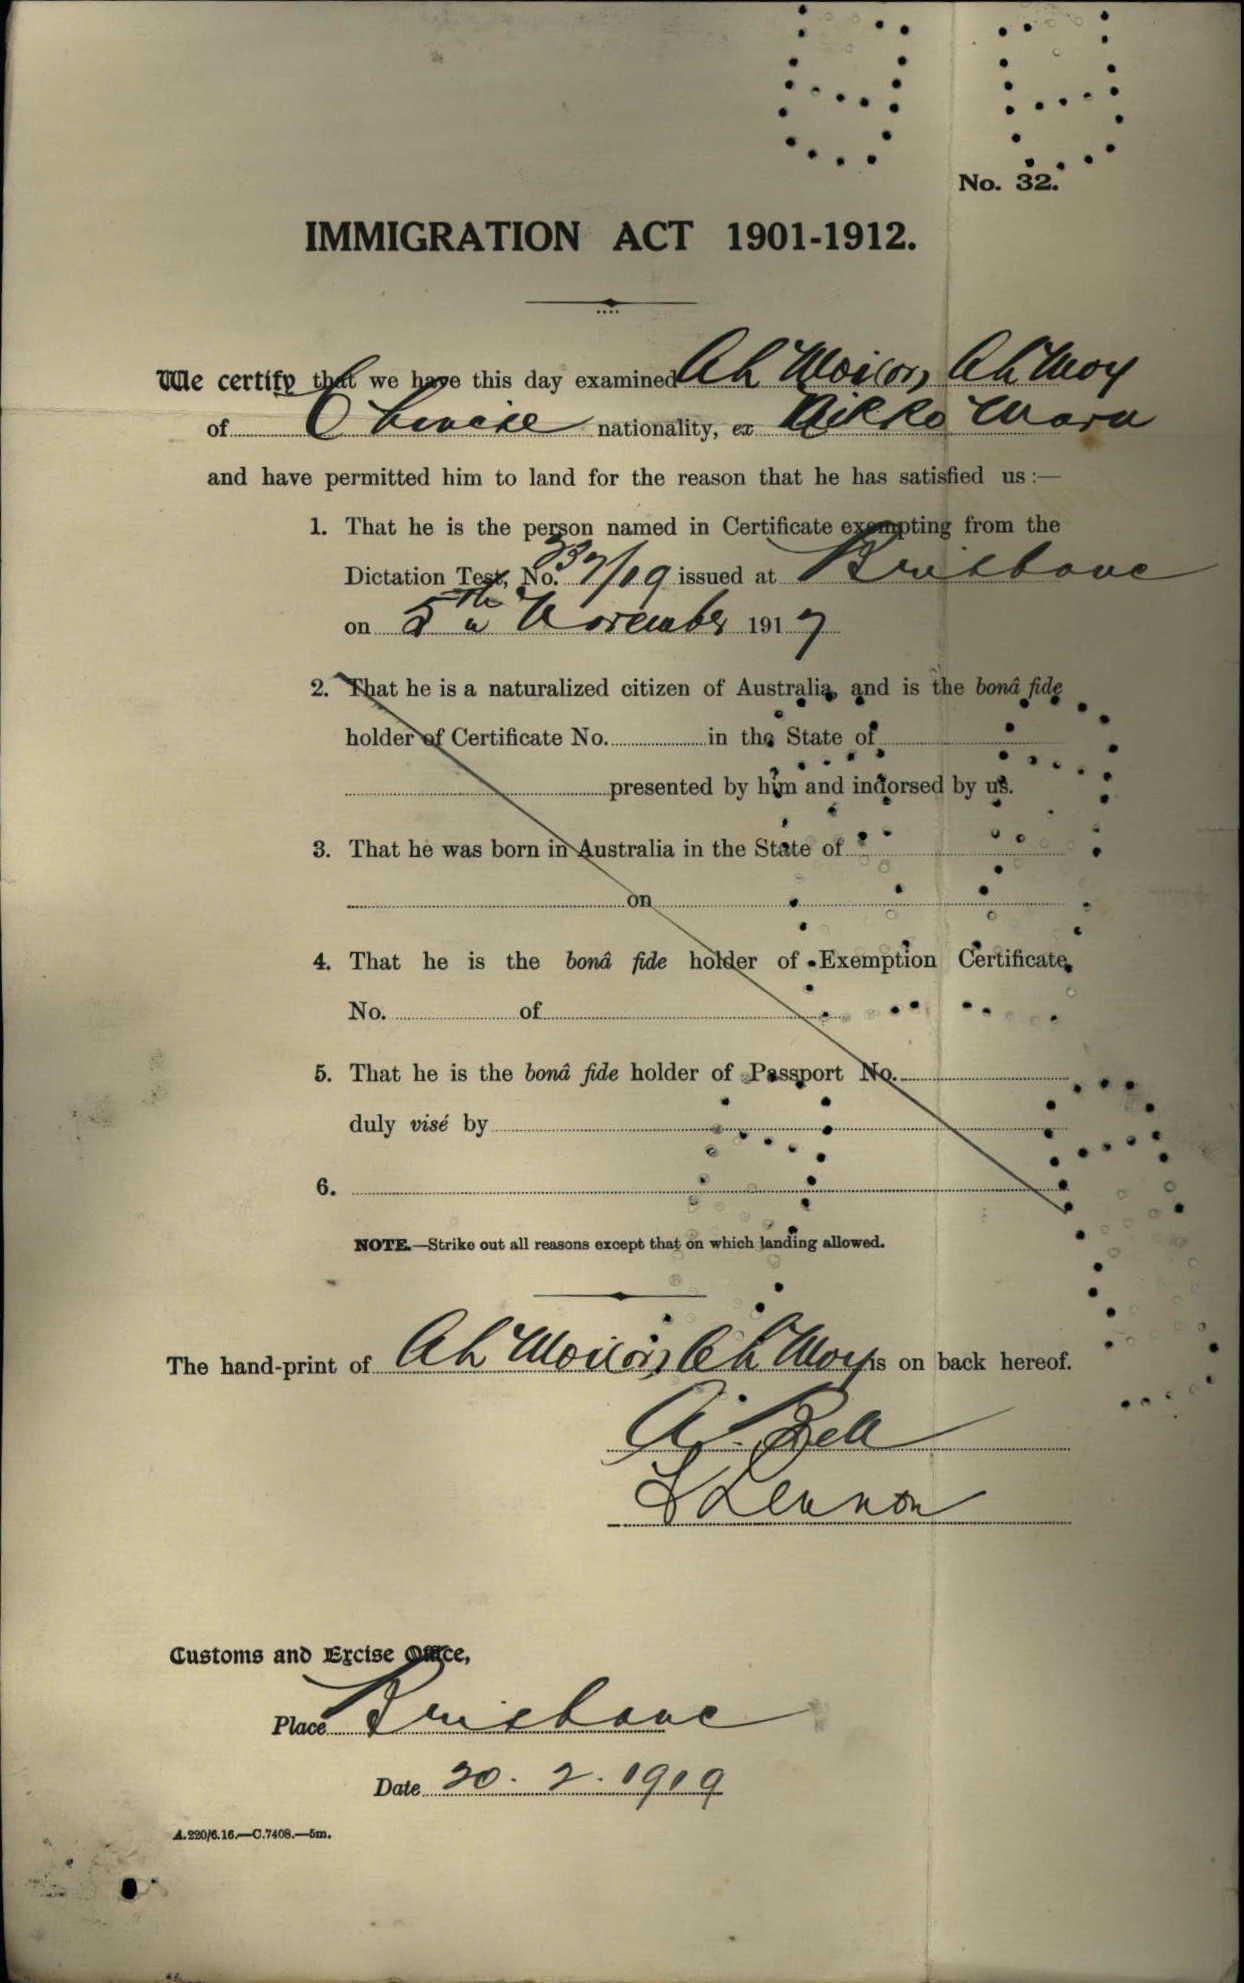 No. 32.
IMMIGRATION ACT 1901-1912.
We certify that we have this day examined Ah Moi (or) Ah Moy
of Chinese nationality, ex Nikko Maru
and have permitted him to land for the reason that he has satisfied us:—
1. That he is the person named in Certificate exempting from the
Dictation Test, No. 237/19 issued at Brisbane
on 5th November 1917
2. That he is a naturalized citizen of Australia, and is the bonâ fide
holder of Certificate No. in the State of
presented by him and indorsed by us.
3. That he was born in Australia in the State of
on
4. That he is the bonâ fide holder of Exemption Certificate,
No. of
5. That he is the bonâ fide holder of Passport No.
duly visé by
6.
NOTE.—Strike out all reasons except that on which landing allowed.
The hand-print of Ah Moi (or) Ah Moy is on back hereof.
A. Bell
Lennon
Customs and Excise Office,
Place Brisbane
Date 20. 2. 1919
A.220/6.16.—C.7408.—5m.